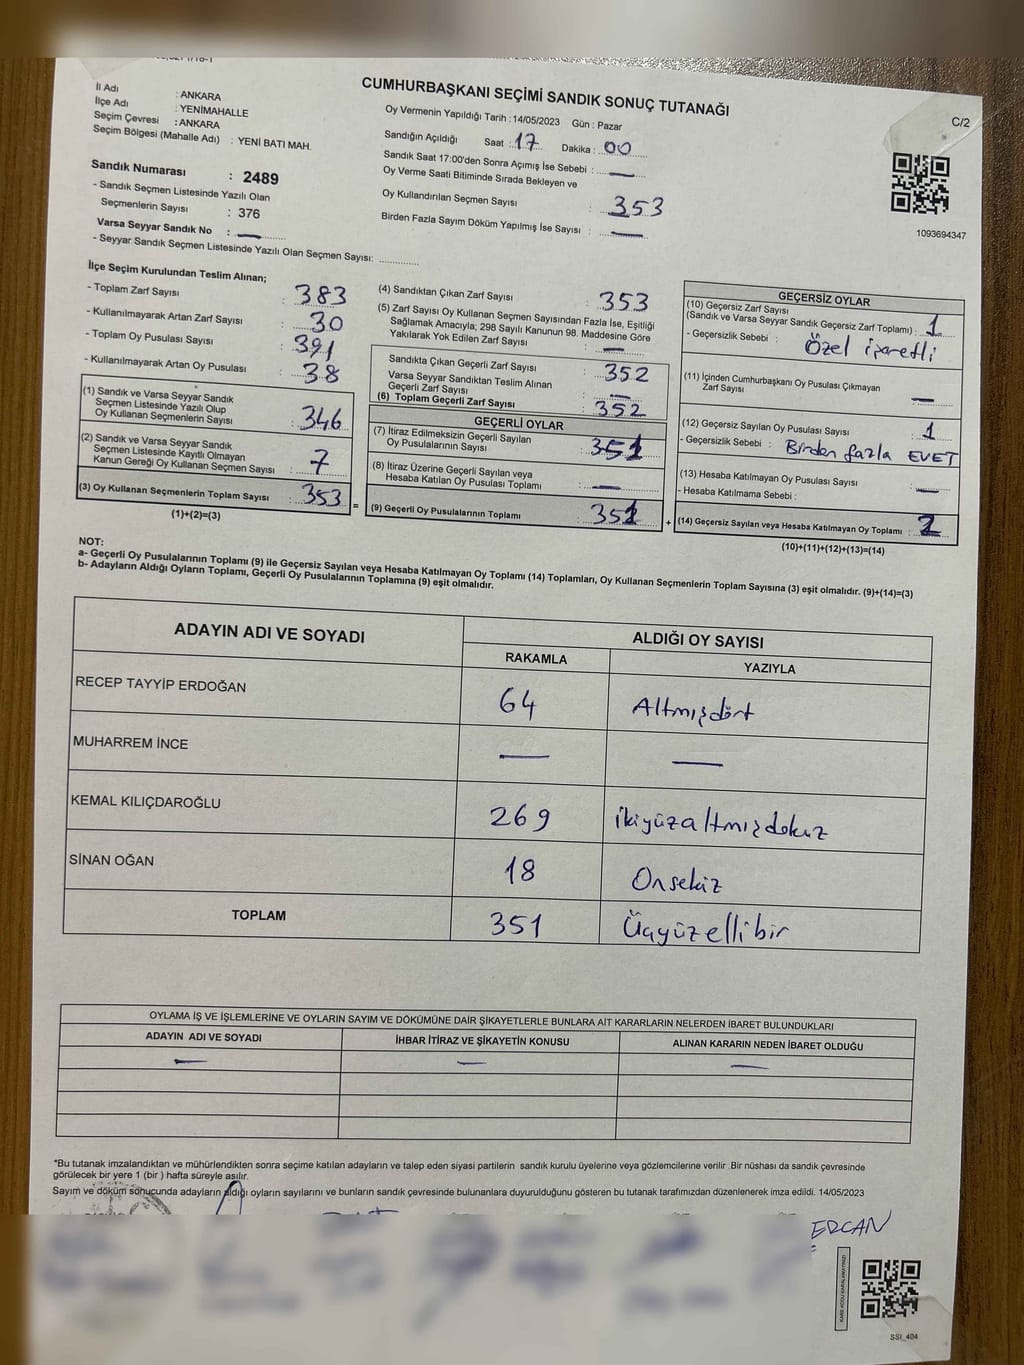 CUMHURBAŞKANI SEÇİMİ SANDIK SONUÇ TUTANAĞI
C/2
İl Adı : ANKARA
İlçe Adı : YENİMAHALLE
Seçim Çevresi : ANKARA
Seçim Bölgesi (Mahalle Adı) : YENİ BATI MAH.
Sandık Numarası : 2489
- Sandık Seçmen Listesinde Yazılı Olan
Seçmenlerin Sayısı : 376
Varsa Seyyar Sandık No : —
- Seyyar Sandık Seçmen Listesinde Yazılı Olan Seçmen Sayısı: ..............
Oy Vermenin Yapıldığı Tarih : 14/05/2023 Gün : Pazar
Sandığın Açıldığı Saat : 17 Dakika : 00
Sandık Saat 17:00'den Sonra Açımış İse Sebebi : —
Oy Verme Saati Bitiminde Sırada Bekleyen ve
Oy Kullandırılan Seçmen Sayısı : 353
Birden Fazla Sayım Döküm Yapılmış İse Sayısı : —
1093694347
İlçe Seçim Kurulundan Teslim Alınan;
- Toplam Zarf Sayısı : 383
- Kullanılmayarak Artan Zarf Sayısı : 30
- Toplam Oy Pusulası Sayısı : 391
- Kullanılmayarak Artan Oy Pusulası : 38
(1) Sandık ve Varsa Seyyar Sandık
Seçmen Listesinde Yazılı Olup
Oy Kullanan Seçmenlerin Sayısı : 346
(2) Sandık ve Varsa Seyyar Sandık
Seçmen Listesinde Kayıtlı Olmayan
Kanun Gereği Oy Kullanan Seçmen Sayısı : 7
(3) Oy Kullanan Seçmenlerin Toplam Sayısı : 353 =
(1)+(2)=(3)
(4) Sandıktan Çıkan Zarf Sayısı : 353
(5) Zarf Sayısı Oy Kullanan Seçmen Sayısından Fazla İse, Eşitliği
Sağlamak Amacıyla; 298 Sayılı Kanunun 98. Maddesine Göre
Yakılarak Yok Edilen Zarf Sayısı : —
Sandıkta Çıkan Geçerli Zarf Sayısı : 352
Varsa Seyyar Sandıktan Teslim Alınan
Geçerli Zarf Sayısı : —
(6) Toplam Geçerli Zarf Sayısı : 352
GEÇERLİ OYLAR
(7) İtiraz Edilmeksizin Geçerli Sayılan
Oy Pusulalarının Sayısı : 351
(8) İtiraz Üzerine Geçerli Sayılan veya
Hesaba Katılan Oy Pusulası Toplamı : —
(9) Geçerli Oy Pusulalarının Toplamı : 351 +
GEÇERSİZ OYLAR
(10) Geçersiz Zarf Sayısı
(Sandık ve Varsa Seyyar Sandık Geçersiz Zarf Toplamı) : 1
- Geçersizlik Sebebi : Özel işaretli
(11) İçinden Cumhurbaşkanı Oy Pusulası Çıkmayan
Zarf Sayısı : —
(12) Geçersiz Sayılan Oy Pusulası Sayısı : 1
- Geçersizlik Sebebi : Birden fazla EVET
(13) Hesaba Katılmayan Oy Pusulası Sayısı : —
- Hesaba Katılmama Sebebi :
(14) Geçersiz Sayılan veya Hesaba Katılmayan Oy Toplamı : 2
(10)+(11)+(12)+(13)=(14)
NOT:
a- Geçerli Oy Pusulalarının Toplamı (9) ile Geçersiz Sayılan veya Hesaba Katılmayan Oy Toplamı (14) Toplamları, Oy Kullanan Seçmenlerin Toplam Sayısına (3) eşit olmalıdır. (9)+(14)=(3)
b- Adayların Aldığı Oyların Toplamı, Geçerli Oy Pusulalarının Toplamına (9) eşit olmalıdır.
ADAYIN ADI VE SOYADI ALDIĞI OY SAYISI
RAKAMLA YAZIYLA
RECEP TAYYİP ERDOĞAN 64 Altmışdört
MUHARREM İNCE — —
KEMAL KILIÇDAROĞLU 269 ikiyüzaltmışdokuz
SİNAN OĞAN 18 Onsekiz
TOPLAM 351 Üçyüzellibir
OYLAMA İŞ VE İŞLEMLERİNE VE OYLARIN SAYIM VE DÖKÜMÜNE DAİR ŞİKAYETLERLE BUNLARA AİT KARARLARIN NELERDEN İBARET BULUNDUKLARI
ADAYIN ADI VE SOYADI İHBAR İTİRAZ VE ŞİKAYETİN KONUSU ALINAN KARARIN NEDEN İBARET OLDUĞU
— — —
*Bu tutanak imzalandıktan ve mühürlendikten sonra seçime katılan adayların ve talep eden siyasi partilerin sandık kurulu üyelerine veya gözlemcilerine verilir .Bir nüshası da sandık çevresinde
görülecek bir yere 1 (bir ) hafta süreyle asılır.
Sayım ve döküm sonucunda adayların aldığı oyların sayılarını ve bunların sandık çevresinde bulunanlara duyurulduğunu gösteren bu tutanak tarafımızdan düzenlenerek imza edildi. 14/05/2023
ERCAN
KARE KODU KARALAMAYINIZ!
SSI_404